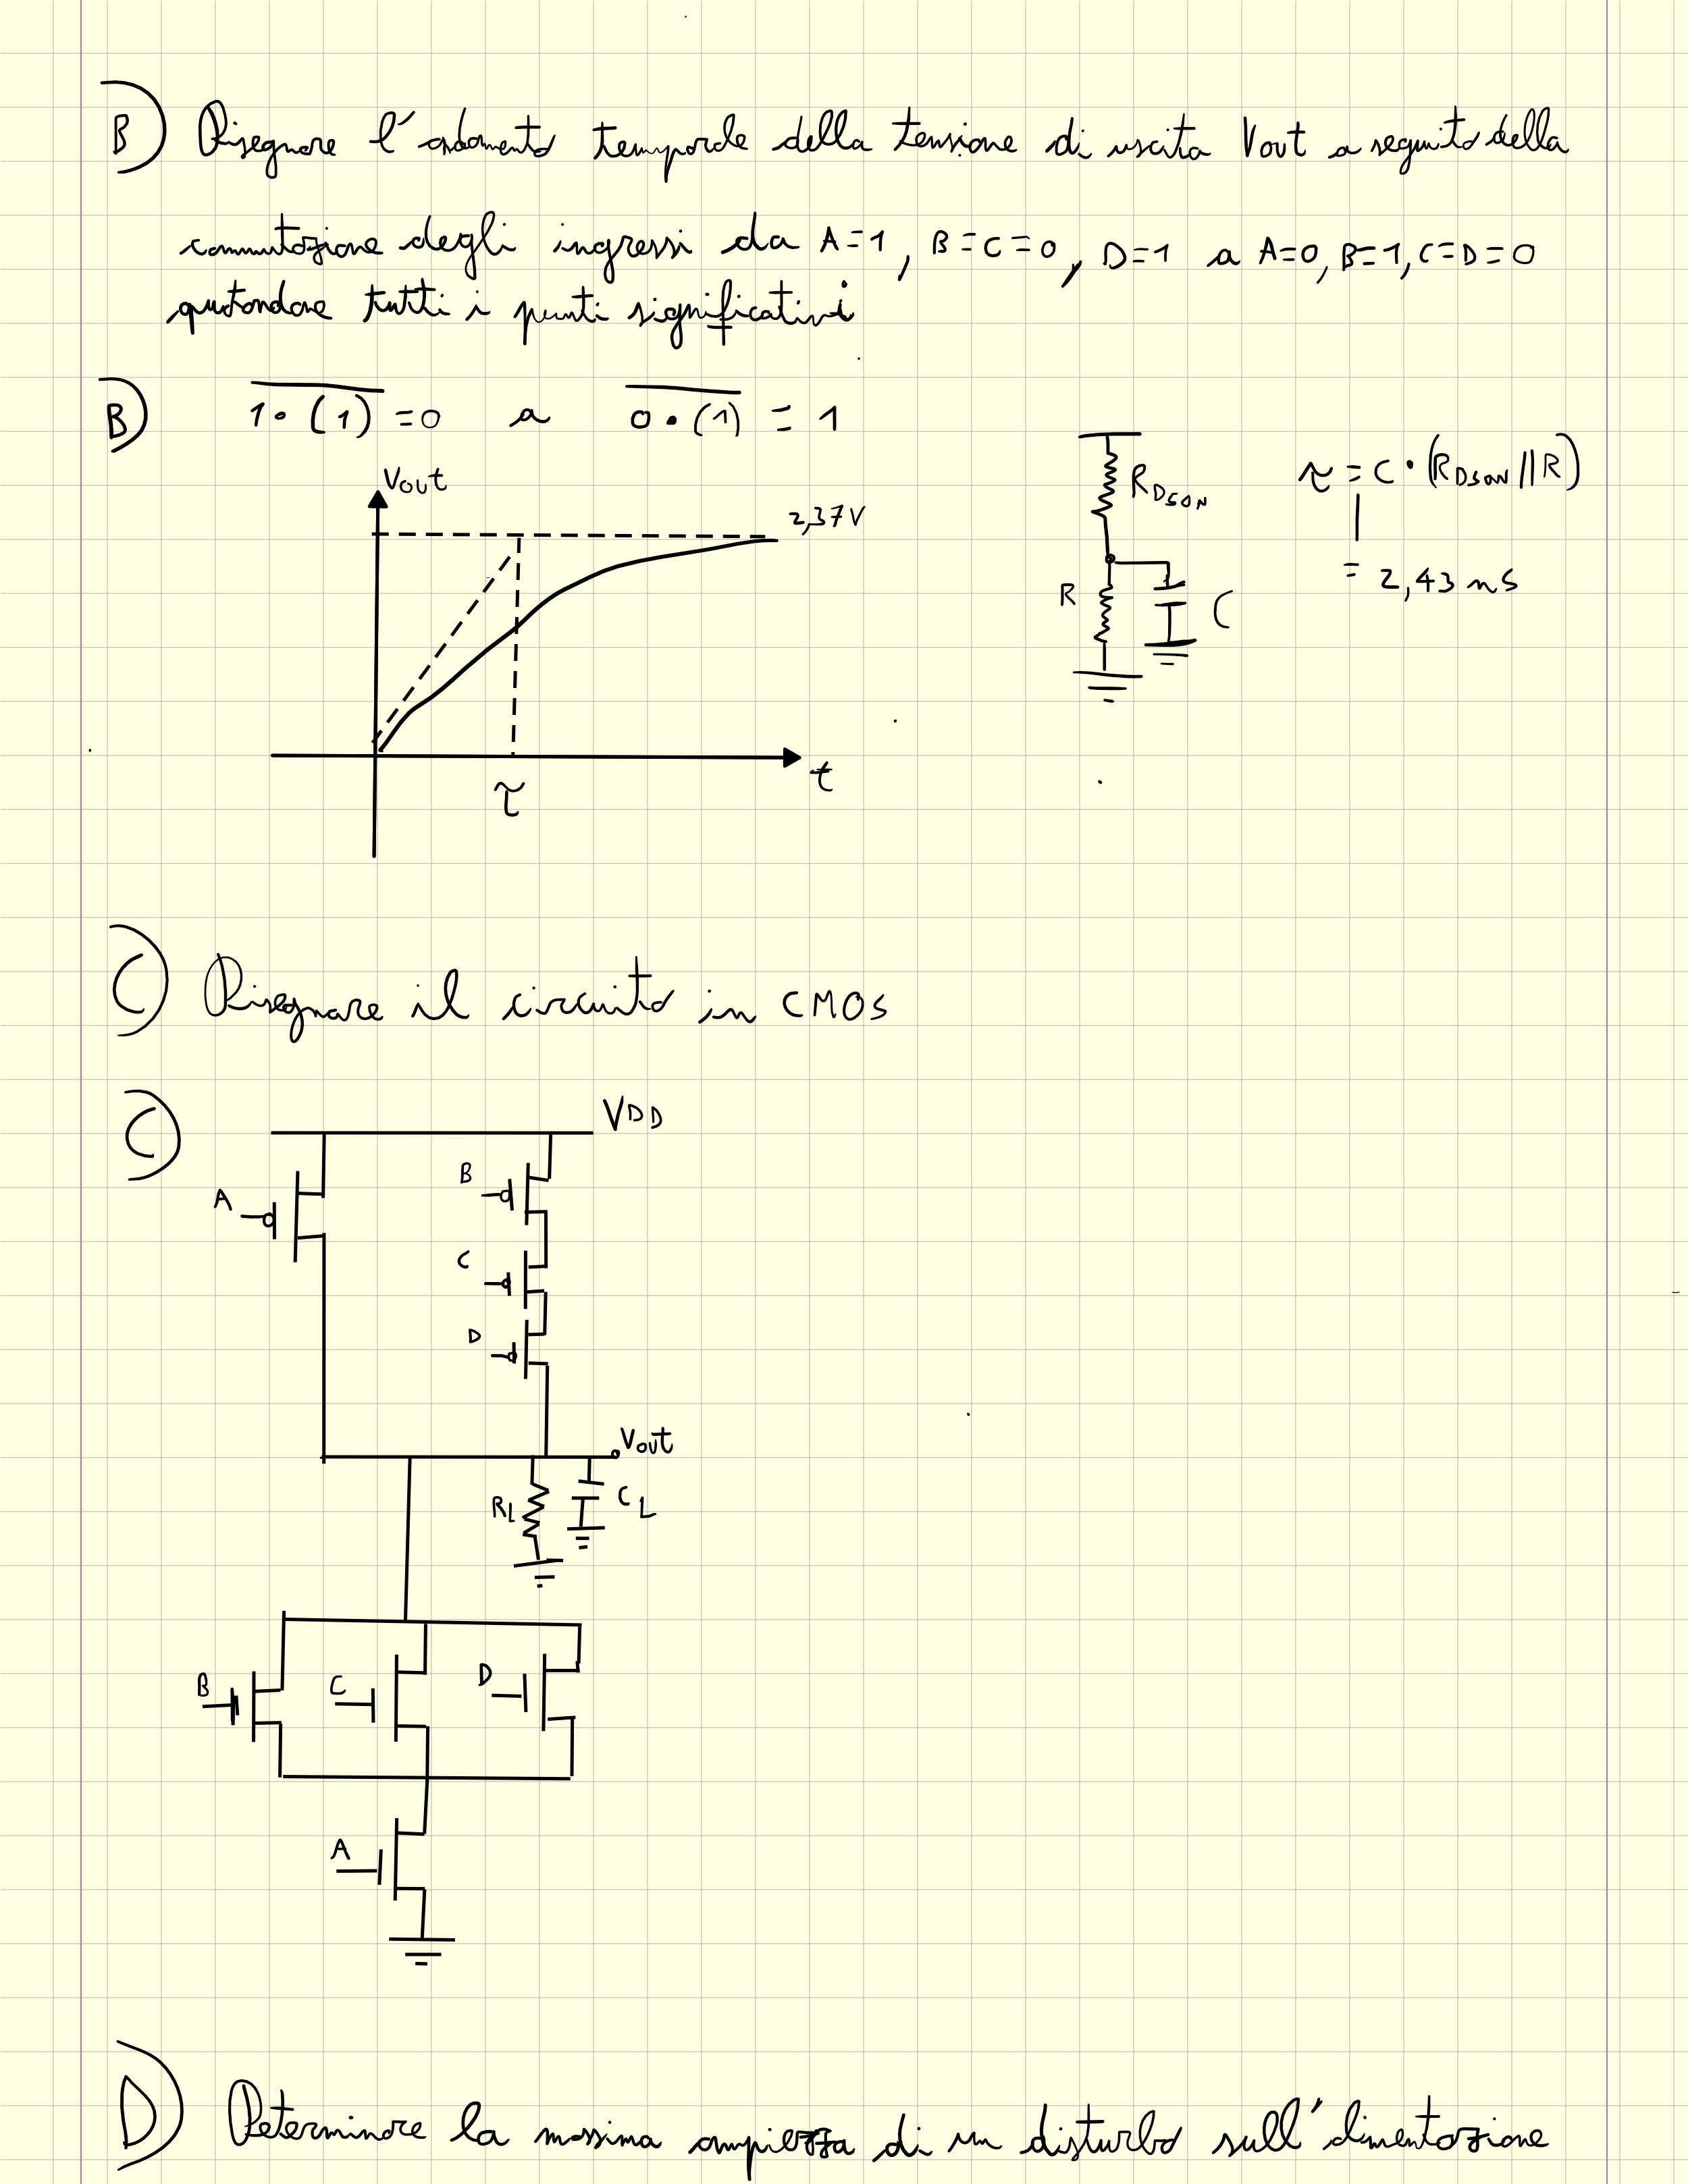 B) Disegnare l'andamento temporale della tensione di uscita Vout a seguito della
commutazione degli ingressi da A=1, B=C=0, D=1 a A=0, B=1, C=D=0
quotandone tutti i punti significativi
B) 1·(1) = 0 a 0·(1) = 1
Vout
2,37V
τ
t
RDSON
R
C
τ = C·(RDSON || R)
= 2,43 ns
C) Disegnare il circuito in CMOS
C)
VDD
A
B
C
D
Vout
RL
CL
B
C
D
A
D) Determinare la massima ampiezza di un disturbo sull'alimentazione